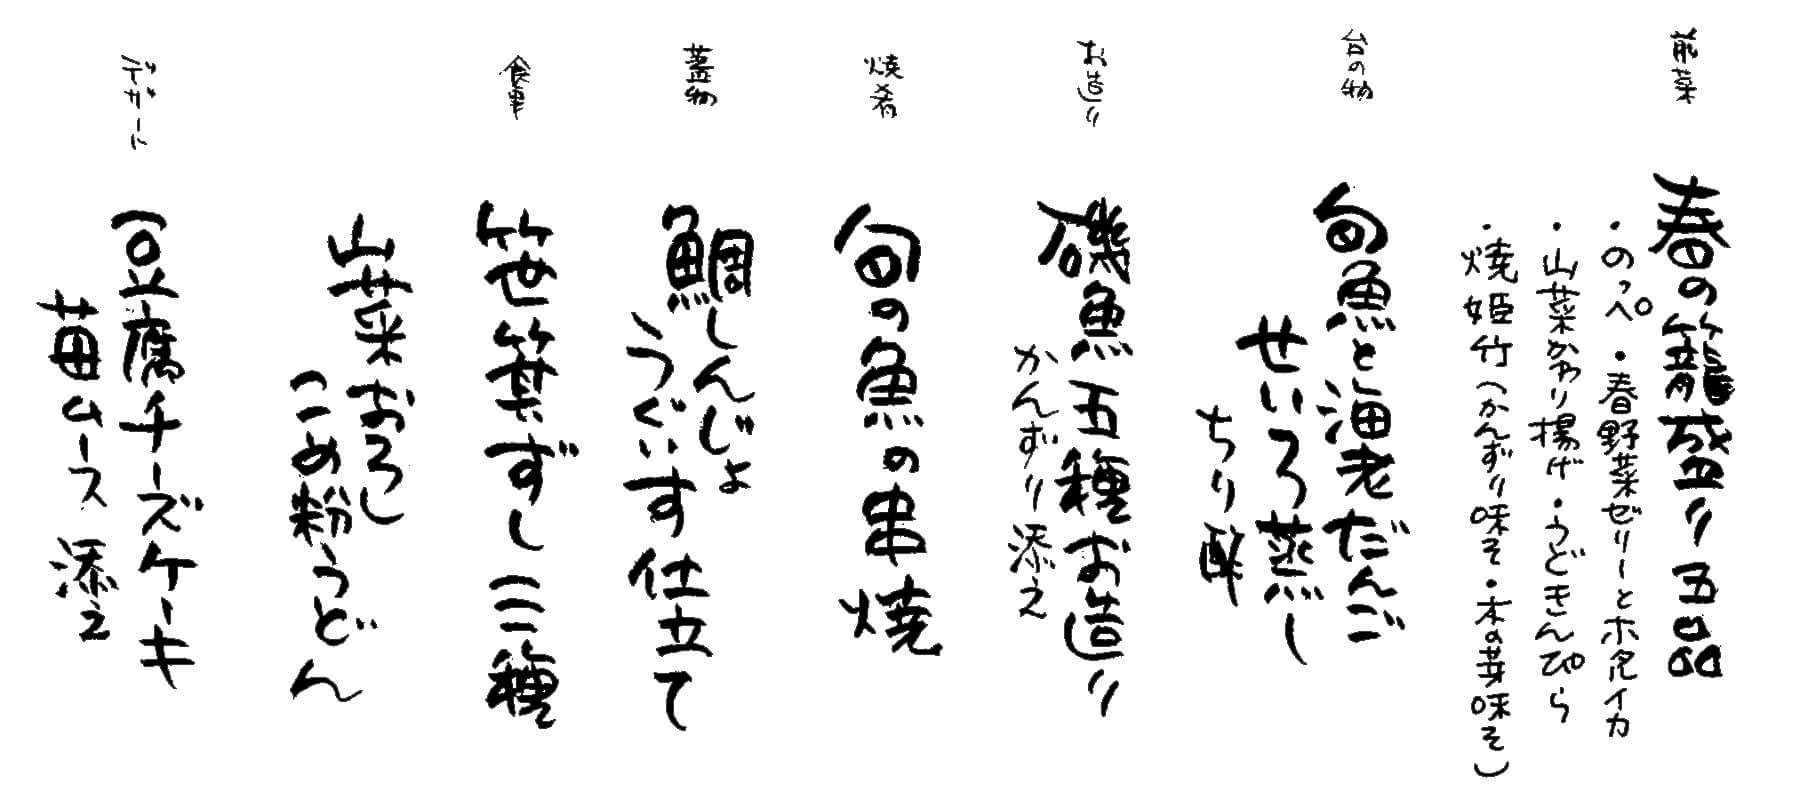 前菜
春の籠盛り五品
・のっぺ・春野菜ゼリーとホタルイカ
・山菜かわり揚げ・うどきんぴら
・焼姫竹（かんずり味そ・木の芽味そ）
台の物
旬魚と海老だんご
せいろ蒸し
ちり酢
お造り
磯魚五種お造り
かんずり添え
焼肴
旬の魚の串焼
蓋物
鯛しんじょ
うぐいす仕立て
食事
笹箕ずし三種
山菜おろし
こめ粉うどん
デザート
豆腐チーズケーキ
苺ムース添え